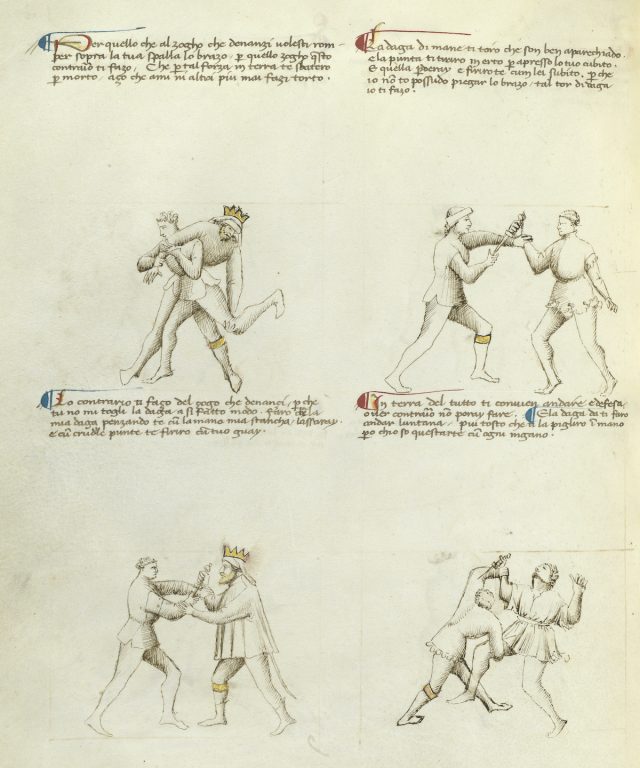 Per quello che al zogho che denanzi volesti rom-
per sopra la tua spalla lo brazo, p quello zogho q̃sto
contrario ti fazo, E che p tal forza in terra te sbatero
p morto, aço che ami ni altri piu mai fazi torto.
La daga di mane ti toro che son ben aparechiado.
e la punta ti tiraro in erto p apresso lo tuo cubito.
E quella p̃deray e firirote cum lei subito. p che
io nõ to possudo piegar lo brazo, tal tor di daga
io ti fazo.
Lo contrario ti faço del çogo che denançi, p che
tu no mi togli la daga a si fatto modo. faro che la
mia daga penzando te cũ la mano mia stancha, lassaray.
e cũ crudele punte te firiro cũ tuo guay.
In terra del tutto ti convien andare e defesa
over contrario nõ poray fare. E la daga da ti faro
andar luntana, piu tosto che ti la pigliro ĩ mano
p che io so questarte cũ ogni ingano.